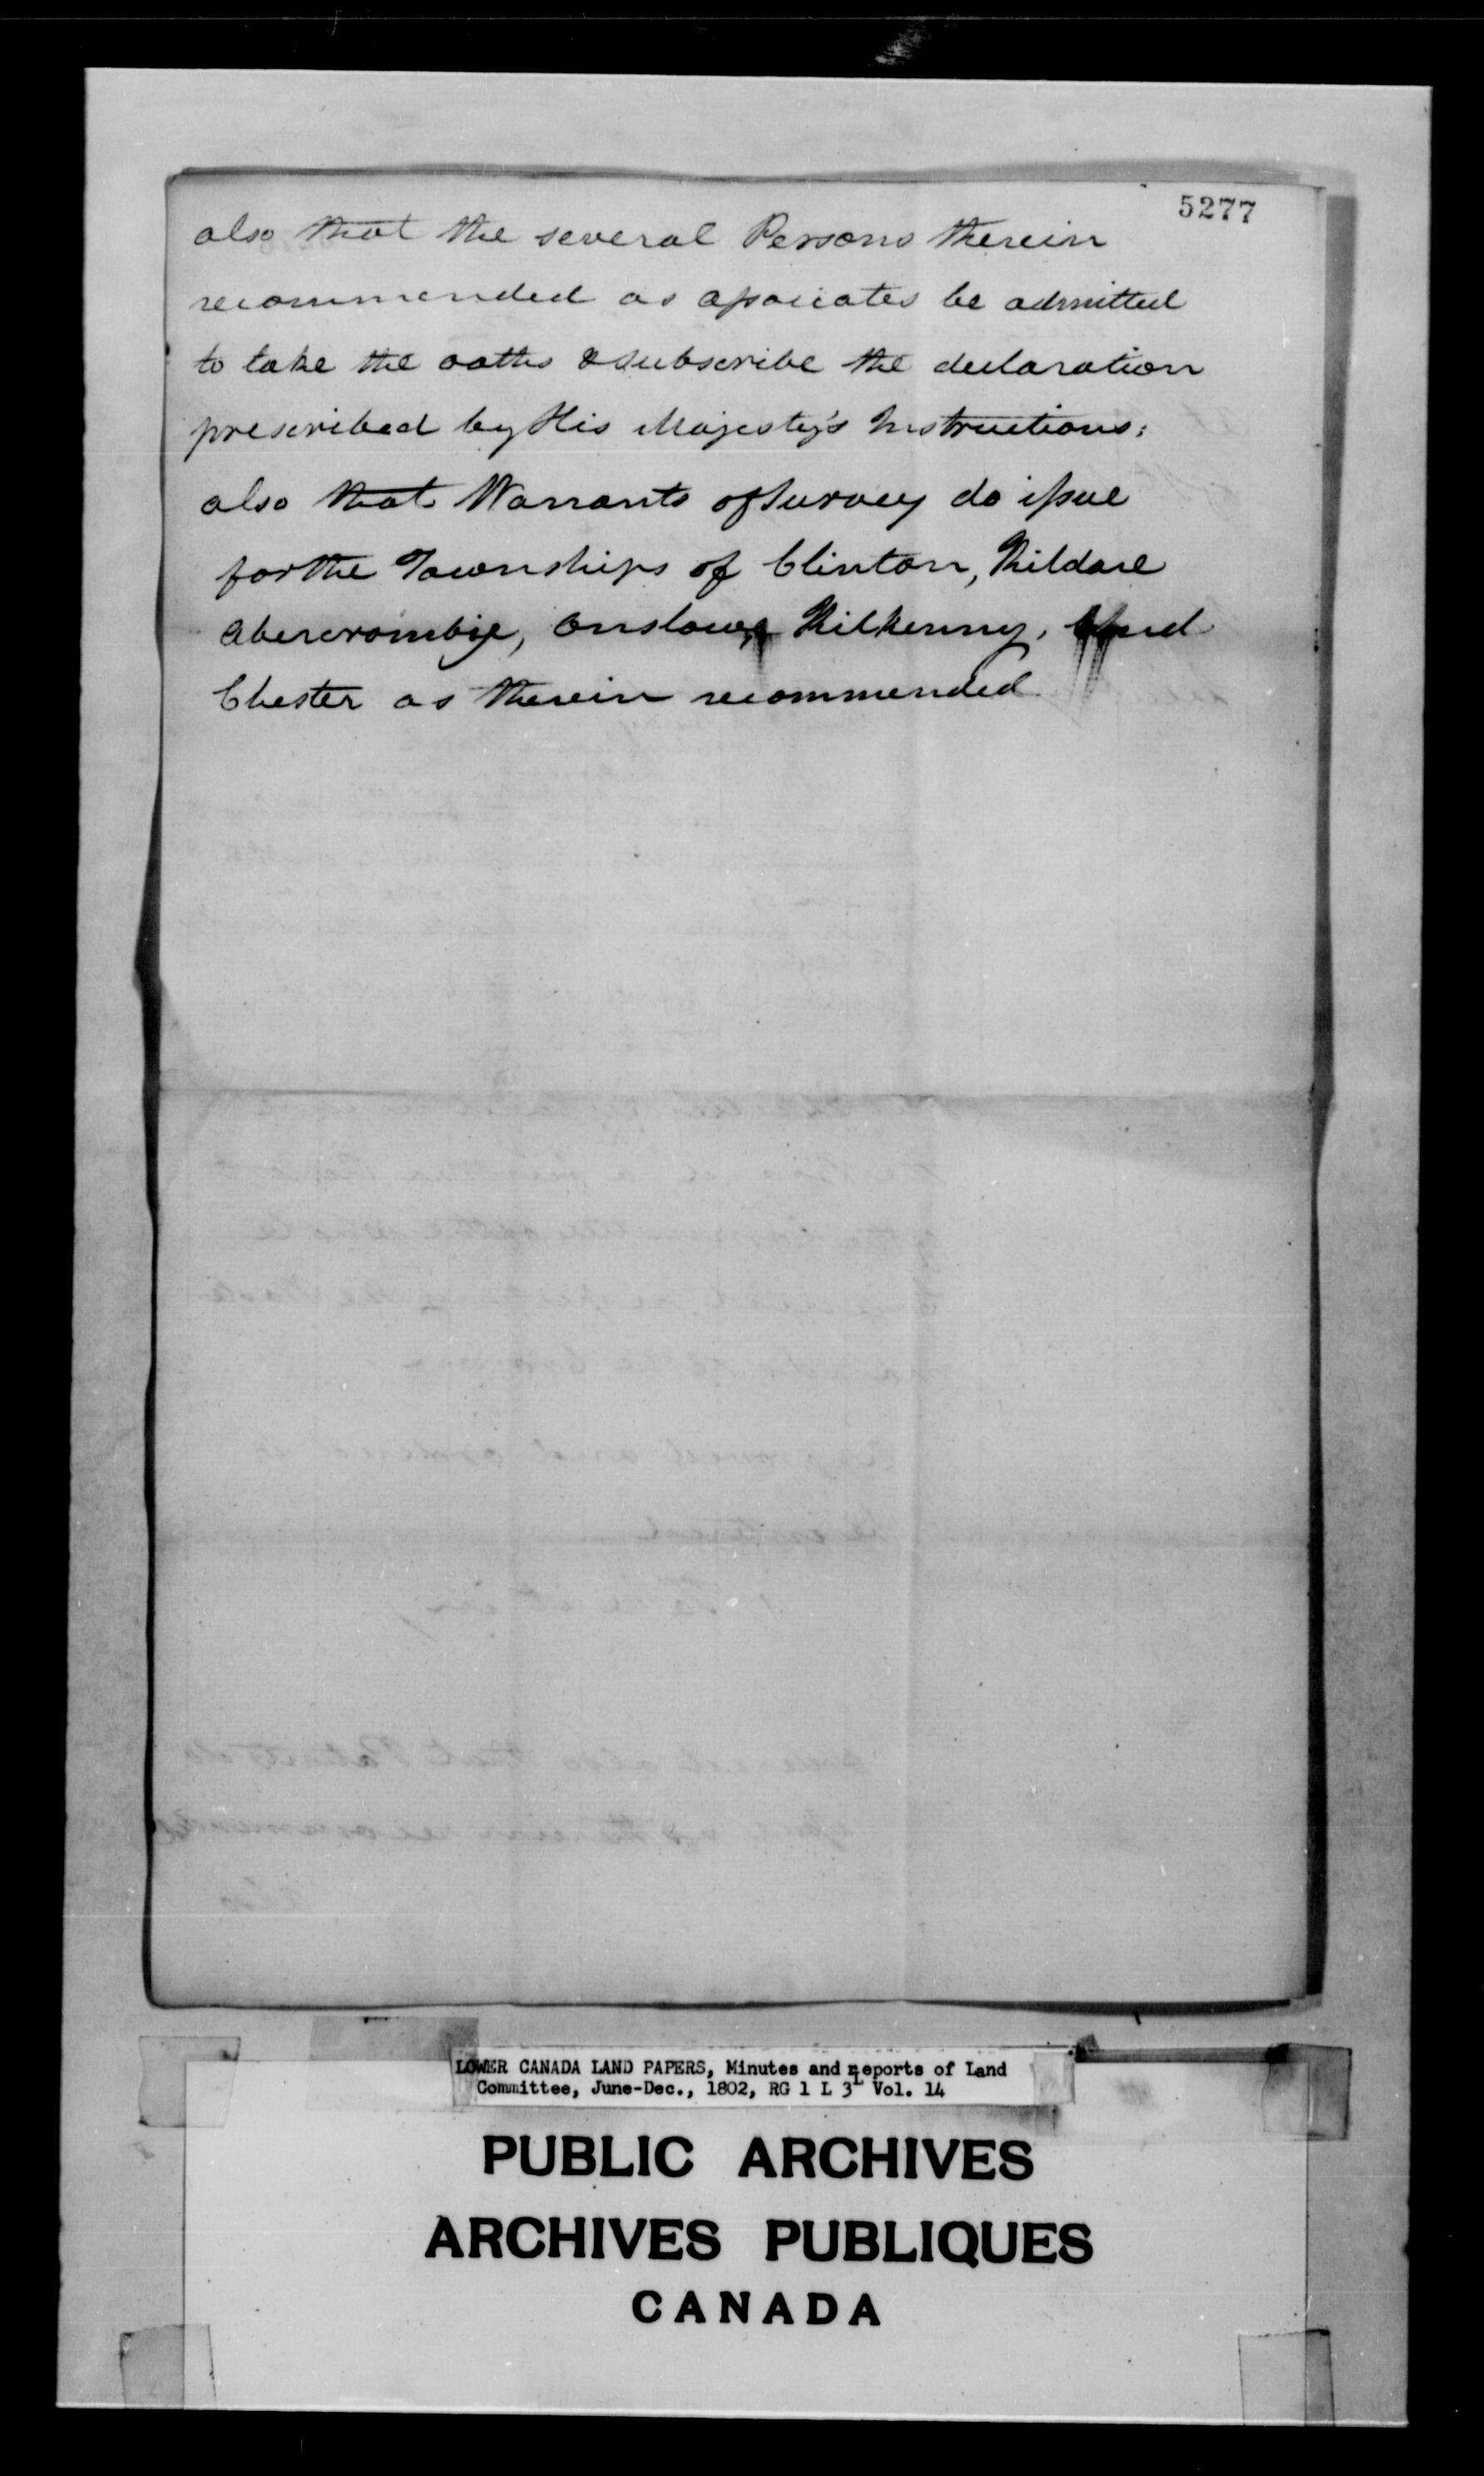 5277
also that the several Persons therein
recommended as associates be admitted
to take the oaths & subscribe the declaration
prescribed by His Majesty's Instructions;
also that Warrants of Survey do issue
for the Townships of Clinton, Kildare
Abercrombie, Onslow, Kilkenny, and
Chester as therein recommended
LOWER CANADA LAND PAPERS, Minutes and Reports of Land
Committee, June-Dec., 1802, RG 1 L 3L Vol. 14
PUBLIC ARCHIVES
ARCHIVES PUBLIQUES
CANADA